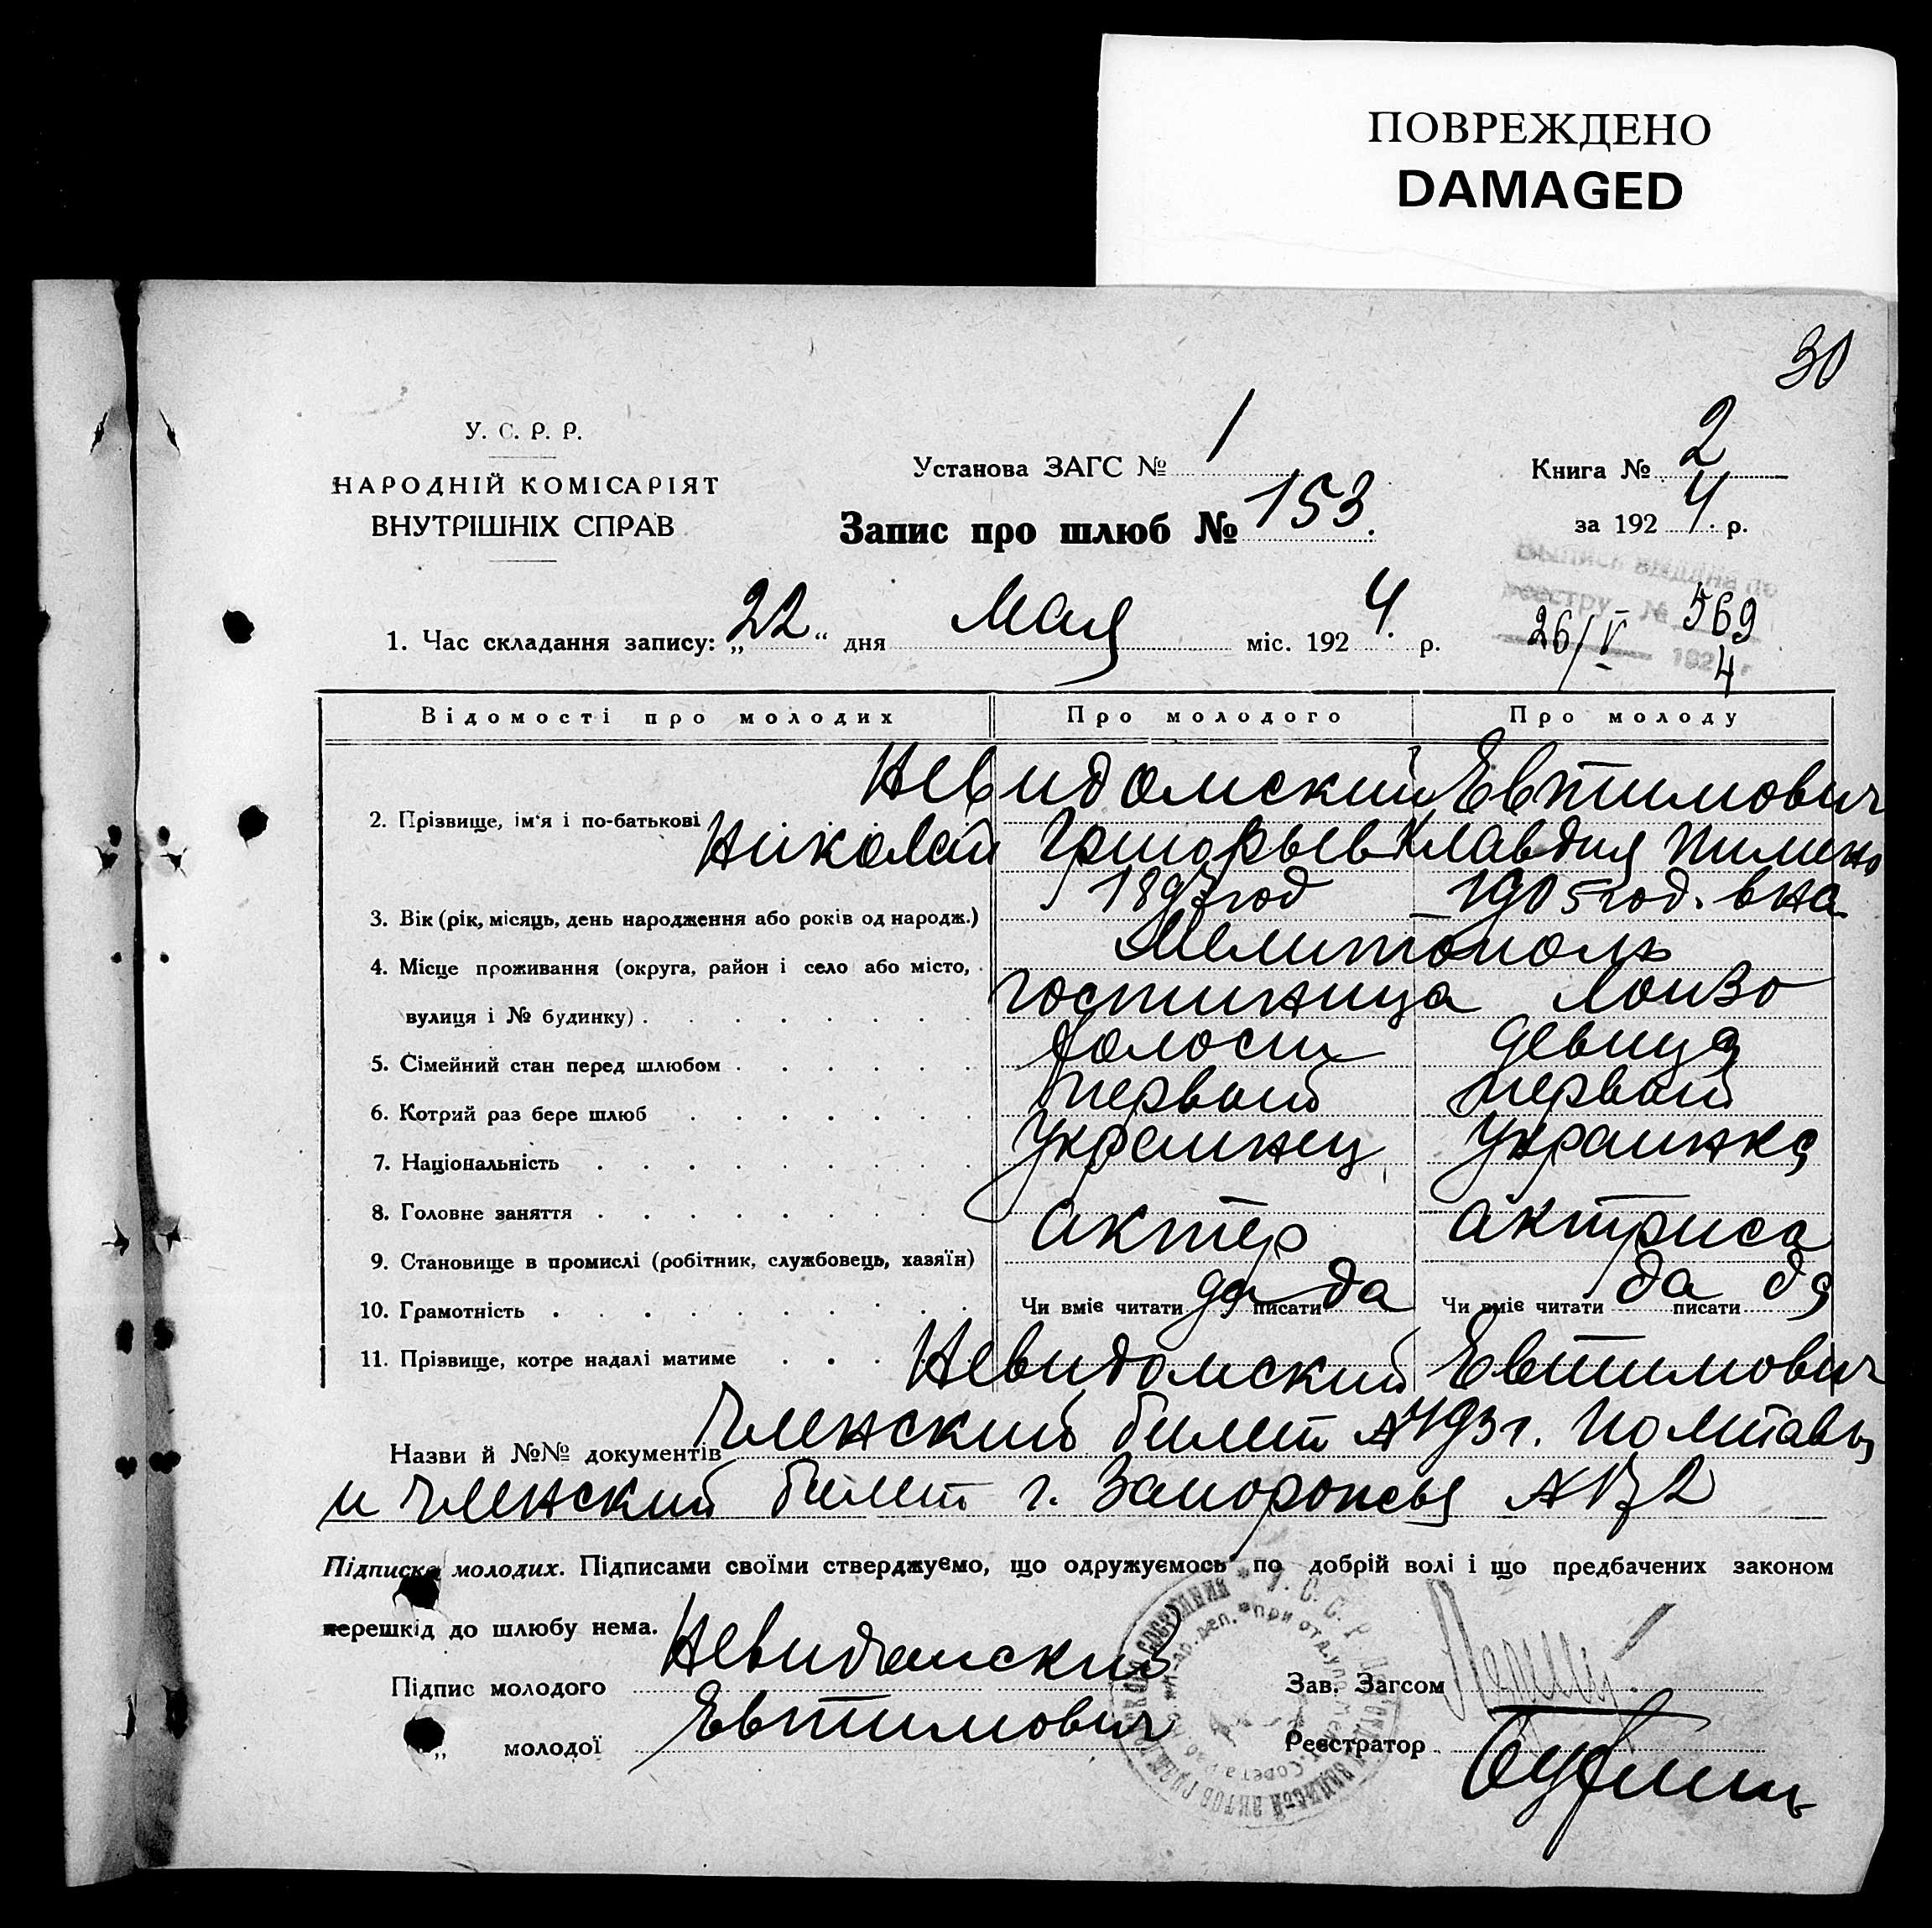 ПОВРЕЖДЕНО
DAMAGED
30
У. С. Р. Р.
НАРОДНІЙ КОМІСАРІЯТ
ВНУТРІШНІХ СПРАВ
Установа ЗАГС № 1
Книга № 2
Запис про шлюб № 153.
за 1924 р.
Выпись выдана по
реестру № 569
26/V 1924 г
1. Час складання запису: „22“ дня Мая міс. 1924. р.
Відомості про молодих Про молодого Про молоду
2. Прізвище, ім'я і по-батькові Невидомский Николай Григорьев Евтимович Клавдия Пимено вна
3. Вік (рік, місяць, день народження або років од народж.) 1897 год 1905 год.
4. Місце проживання (округа, район і село або місто, Мелитополь
вулиця і № будинку) гостиница
5. Сімейний стан перед шлюбом холост девица
6. Котрий раз бере шлюб первый первый
7. Національність Украинец Украинка
8. Головне заняття актер актриса
9. Становище в промислі (робітник, службовець, хазяїн)
10. Грамотність Чи вміє читати да писати да Чи вміє читати да писати да
11. Прізвище, котре надалі матиме Невидомский Евтимович
Назви й №№ документів Членский билет г. Полтавы
и членский билет г. Запорожья
Підписка молодих. Підписами своїми стверджуємо, що одружуємось по добрій волі і що предбачених законом
перешкід до шлюбу нема.
Підпис молодого Невидомский
Зав. Загсом
„ молодої Евтимович
Реєстратор